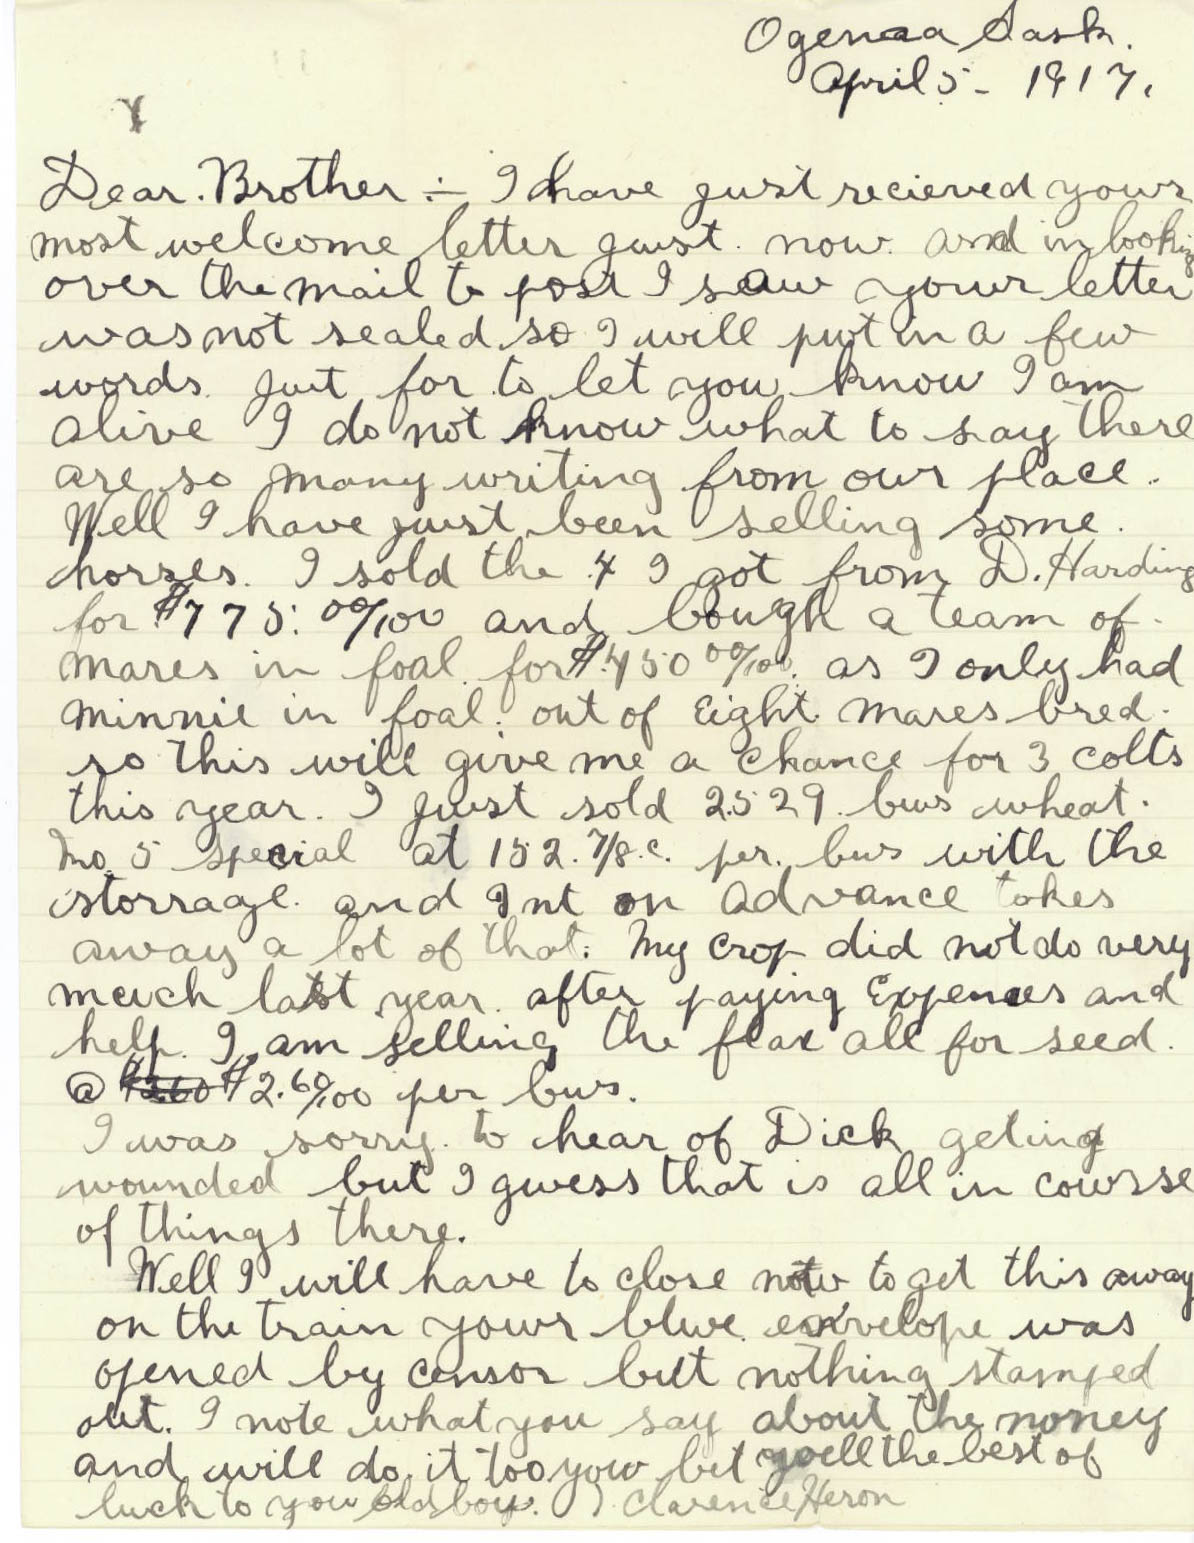 Ogenaa Sask.
April 5 - 1917.
Dear. Brother ÷ I have just recieved your
most welcome letter just. now. and in looking
over the mail to post I saw your letter
was not sealed so I will put in a few
words. just for to let you know I am
alive I do not know what to say there
are so many writing from our place.
Well I have just been selling some.
horses. I sold the 4 I got from D. Harding
for $775: 00/100 and bough a team of
mares in foal. for $450 00/100. as I only had
minnie in foal. out of Eight mares bred.
so this will give me a chance for 3 colts
this year. I just sold 2529. bus wheat.
No. 5 special at 152. 7/8.c. per. bus with the
storrage. and Int on advance takes
away a lot of that. My crop did not do very
much last year. after paying Expences and
help. I am selling the flax all for seed.
@ $2.60/100 per bus.
I was sorry to hear of Dick geting
wounded but I guess that is all in course
of things there.
Well I will have to close now to get this away
on the train your blue. envelope was
opened by censor but nothing stamped
out. I note what you say about the money
and will do it too you bet well the best of
luck to you old boy. Clarence Heron